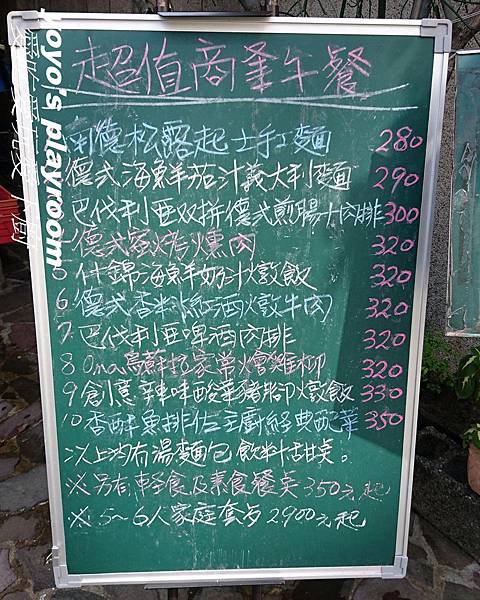 超值商業午餐
南德松露起士手工麵 280
德式海鮮茄汁義大利麵 290
巴伐利亞双拼德式煎腸+肉排 300
德式窯烤燻肉 320
什錦海鮮奶汁燉飯 320
6. 德式香料紅酒燉牛肉 320
7. 巴伐利亞啤酒肉排 320
8 Oma烏蘇拉家常燴雞柳 320
9 創意辣味酸菜豬腳燉飯 330
10 香酥魚排佐主廚經典配菜 350
以上均有湯麵包飲料甜点。
※另有輕食及素食餐点 350元起
※ 5~6人家庭套夕 2900元起
yoyo's playroom